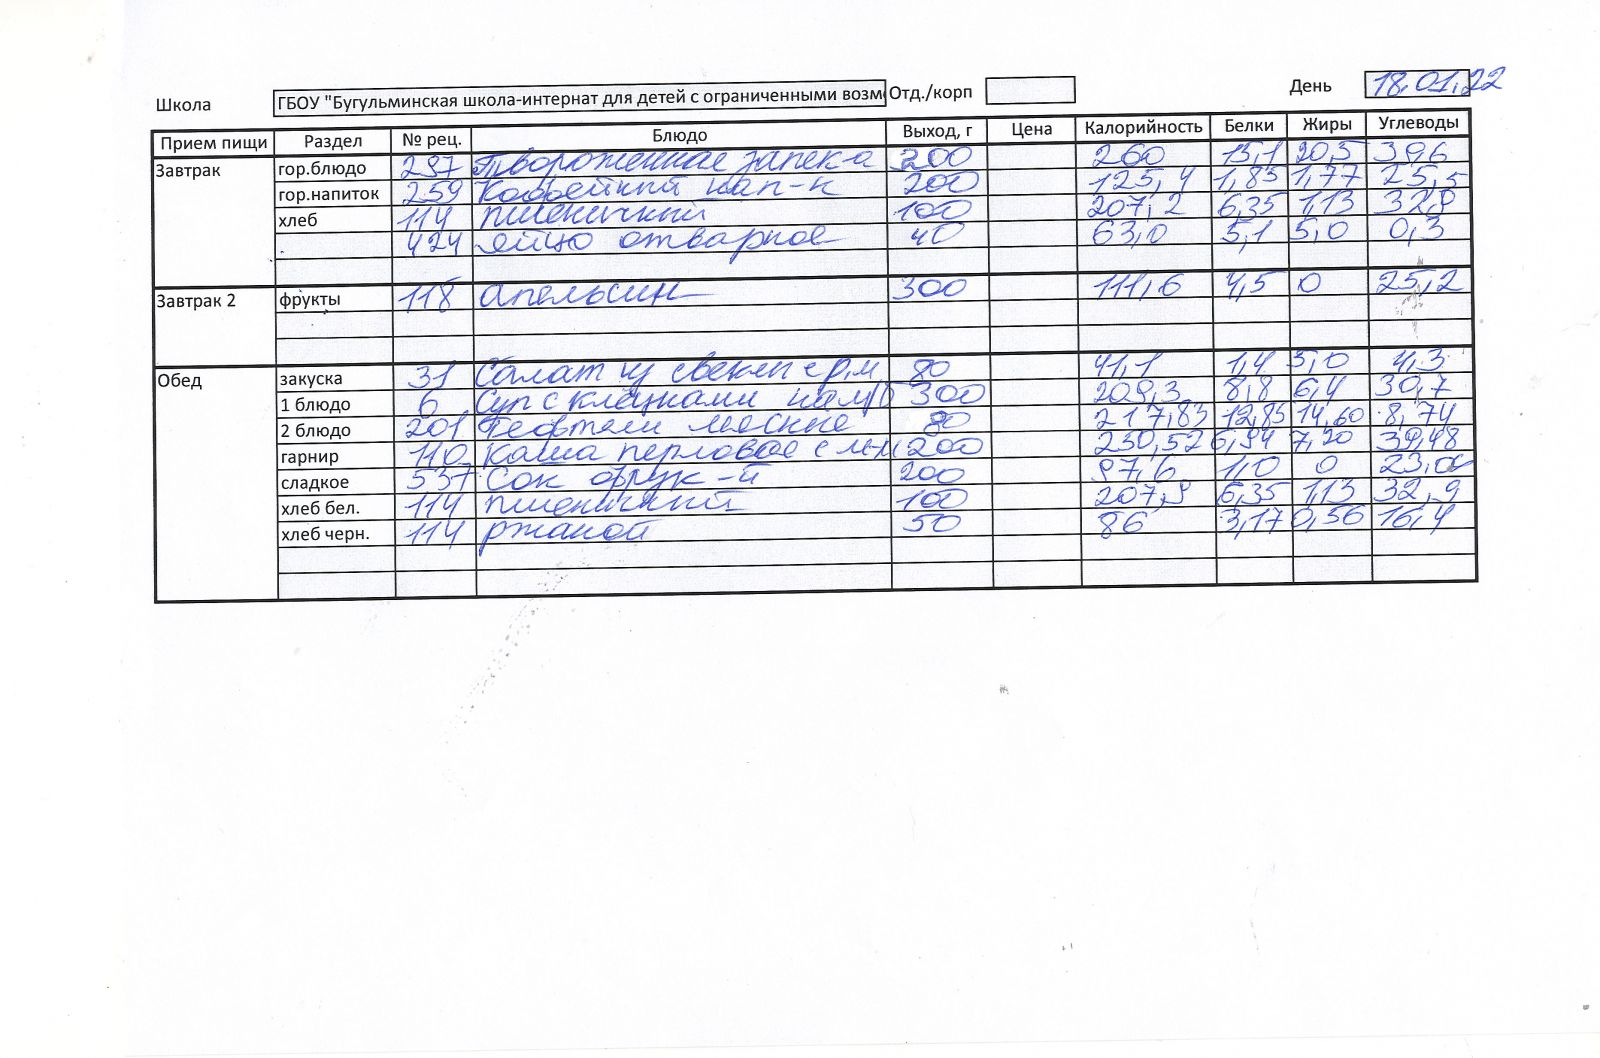 Школа ГБОУ "Бугульминская школа-интернат для детей с ограниченными возм Отд./корп День 18.01.22
Прием пищи Раздел № рец. Блюдо Выход, г Цена Калорийность Белки Жиры Углеводы
Завтрак гор.блюдо 237 Твороженная запек-а 200 260 15,1 20,5 39,6
гор.напиток 259 Кофейный нап-к 200 125,4 1,85 1,77 25,5
хлеб 114 пшеничный 100 207,2 6,35 1,13 32,9
424 яйцо отварное 40 63,0 5,1 5,0 0,3
Завтрак 2 фрукты 118 апельсин 300 111,6 4,5 0 25,2
Обед закуска 31 Салат из свеклы с р.м 80 41,1 1,4 5,0 4,3
1 блюдо 6 Суп с клецками на м/б 300 209,3 8,8 6,4 30,7
2 блюдо 201 Тефтели мясные 80 217,83 12,85 14,60 8,74
гарнир 110 каша перловая с м 200 230,52 6,94 7,20 39,48
сладкое 537 Сок фрук-й 200 97,6 1,0 0 23,0
хлеб бел. 114 пшеничный 100 207,9 6,35 1,13 32,9
хлеб черн. 114 ржаной 50 86 3,17 0,56 16,4